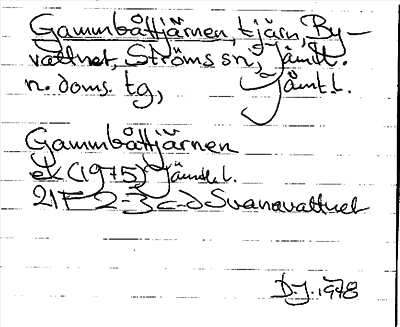 Gammbåttjärnen, tjärn, By-
vattnet, Ströms sn, Jämtl.
n. doms. tg, Jämt l.
Gammbåttjärnen
ek (1975) Jämtl l.
21F 2-3 c-d Svanavattnet
D.J. 1978